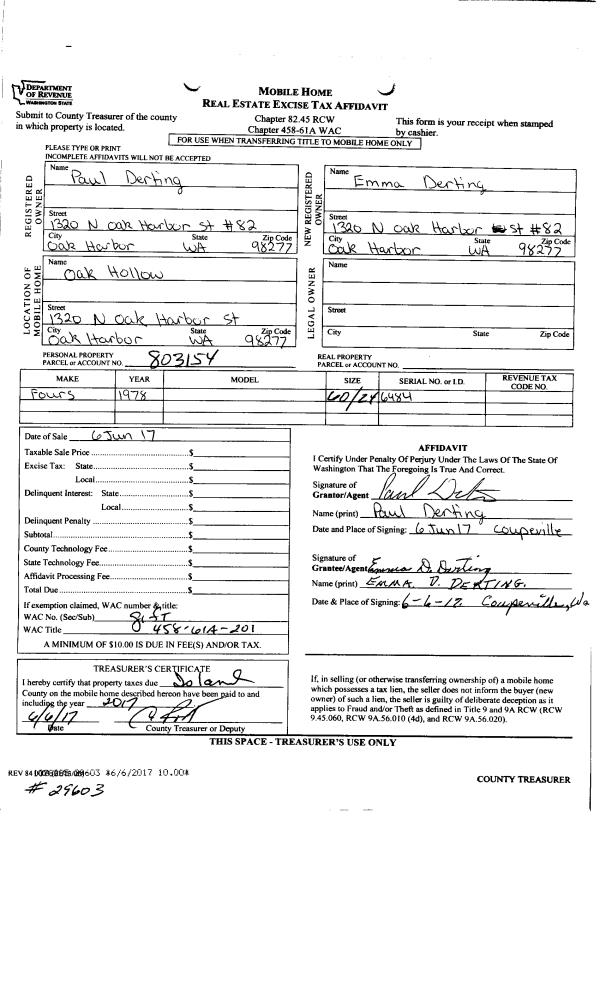 DEPARTMENT
OF REVENUE
WASHINGTON STATE
MOBILE HOME
REAL ESTATE EXCISE TAX AFFIDAVIT
Submit to County Treasurer of the county
in which property is located.
Chapter 82.45 RCW
Chapter 458-61A WAC
This form is your receipt when stamped
by cashier.
FOR USE WHEN TRANSFERRING TITLE TO MOBILE HOME ONLY
PLEASE TYPE OR PRINT
INCOMPLETE AFFIDAVITS WILL NOT BE ACCEPTED
REGISTERED
OWNER
Name
Paul Derting
Street
1320 N Oak Harbor St #82
City State Zip Code
Oak Harbor WA 98277
NEW REGISTERED
OWNER
Name
Emma Derting
Street
1320 N Oak Harbor St #82
City State Zip Code
Oak Harbor WA 98277
LOCATION OF
MOBILE HOME
Name
Oak Hollow
Street
1320 N Oak Harbor St
City State Zip Code
Oak Harbor WA 98277
LEGAL OWNER
Name
Street
City State Zip Code
PERSONAL PROPERTY
PARCEL or ACCOUNT NO. 803154
REAL PROPERTY
PARCEL or ACCOUNT NO.
MAKE YEAR MODEL SIZE SERIAL NO. or I.D. REVENUE TAX CODE NO.
Fours 1978 60/24 6484
Date of Sale 6 Jun 17
Taxable Sale Price $
Excise Tax: State $
Local $
Delinquent Interest: State $
Local $
Delinquent Penalty $
Subtotal $
County Technology Fee $
State Technology Fee $
Affidavit Processing Fee $
Total Due $
If exemption claimed, WAC number & title:
WAC No. (Sec/Sub) gift
WAC Title 458-61A-201
A MINIMUM OF $10.00 IS DUE IN FEE(S) AND/OR TAX.
AFFIDAVIT
I Certify Under Penalty Of Perjury Under The Laws Of The State Of
Washington That The Foregoing Is True And Correct.
Signature of
Grantor/Agent
Name (print) Paul Derting
Date and Place of Signing: 6 Jun 17 Coupeville
Signature of
Grantee/Agent Emma D. Derting
Name (print) EMMA D. DERTING.
Date & Place of Signing: 6-6-17 Coupeville, Wa
TREASURER'S CERTIFICATE
I hereby certify that property taxes due Island
County on the mobile home described hereon have been paid to and
including the year 2017
6/6/17
Date County Treasurer or Deputy
If, in selling (or otherwise transferring ownership of) a mobile home
which possesses a tax lien, the seller does not inform the buyer (new
owner) of such a lien, the seller is guilty of deliberate deception as it
applies to Fraud and/or Theft as defined in Title 9 and 9A RCW (RCW
9.45.060, RCW 9A.56.010 (4d), and RCW 9A.56.020).
THIS SPACE - TREASURER'S USE ONLY
REV 84 603 *6/6/2017 10.00*
# 29603
COUNTY TREASURER